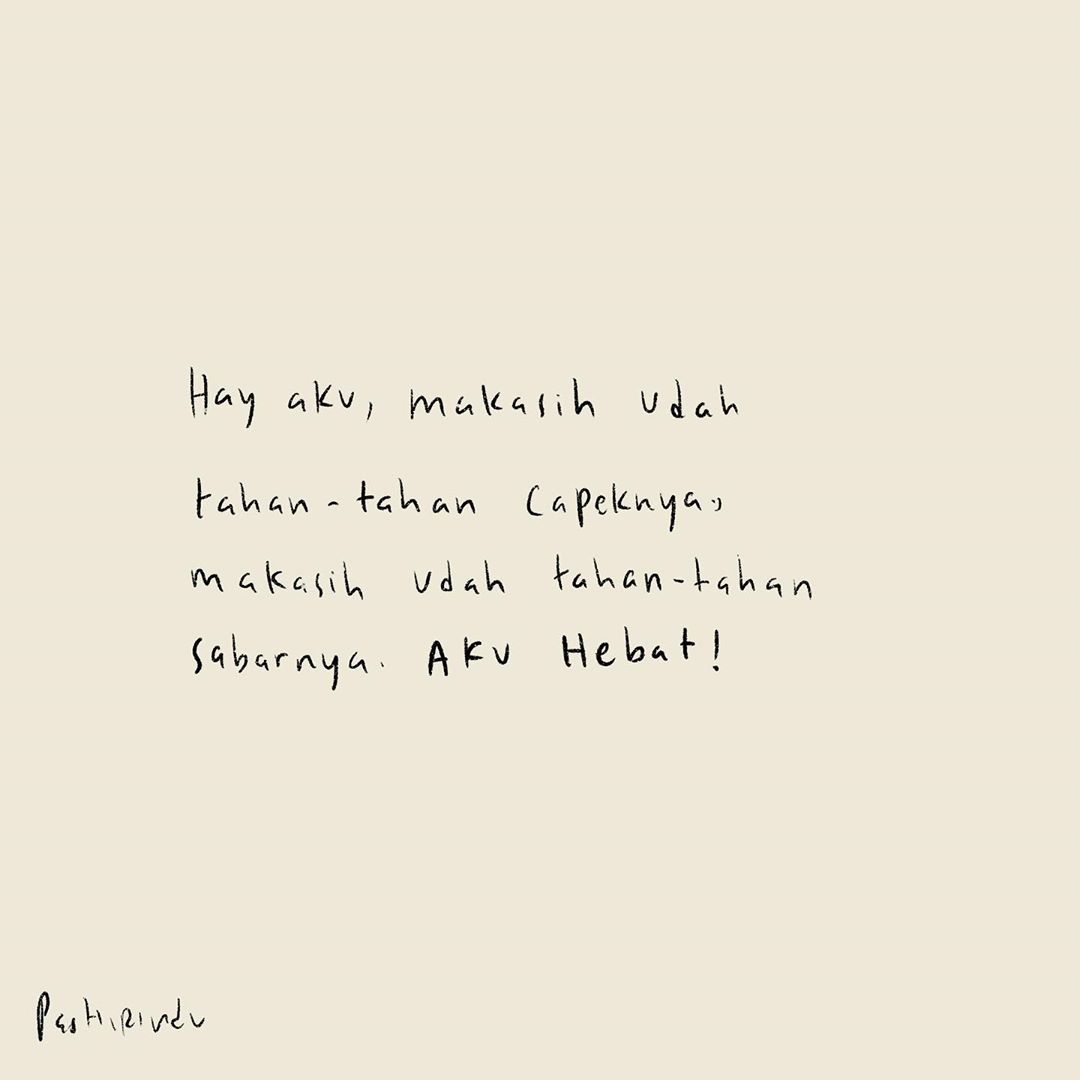 Hay aku, makasih udah
tahan-tahan capeknya,
makasih udah tahan-tahan
sabarnya. AKU Hebat!
Pastirindu